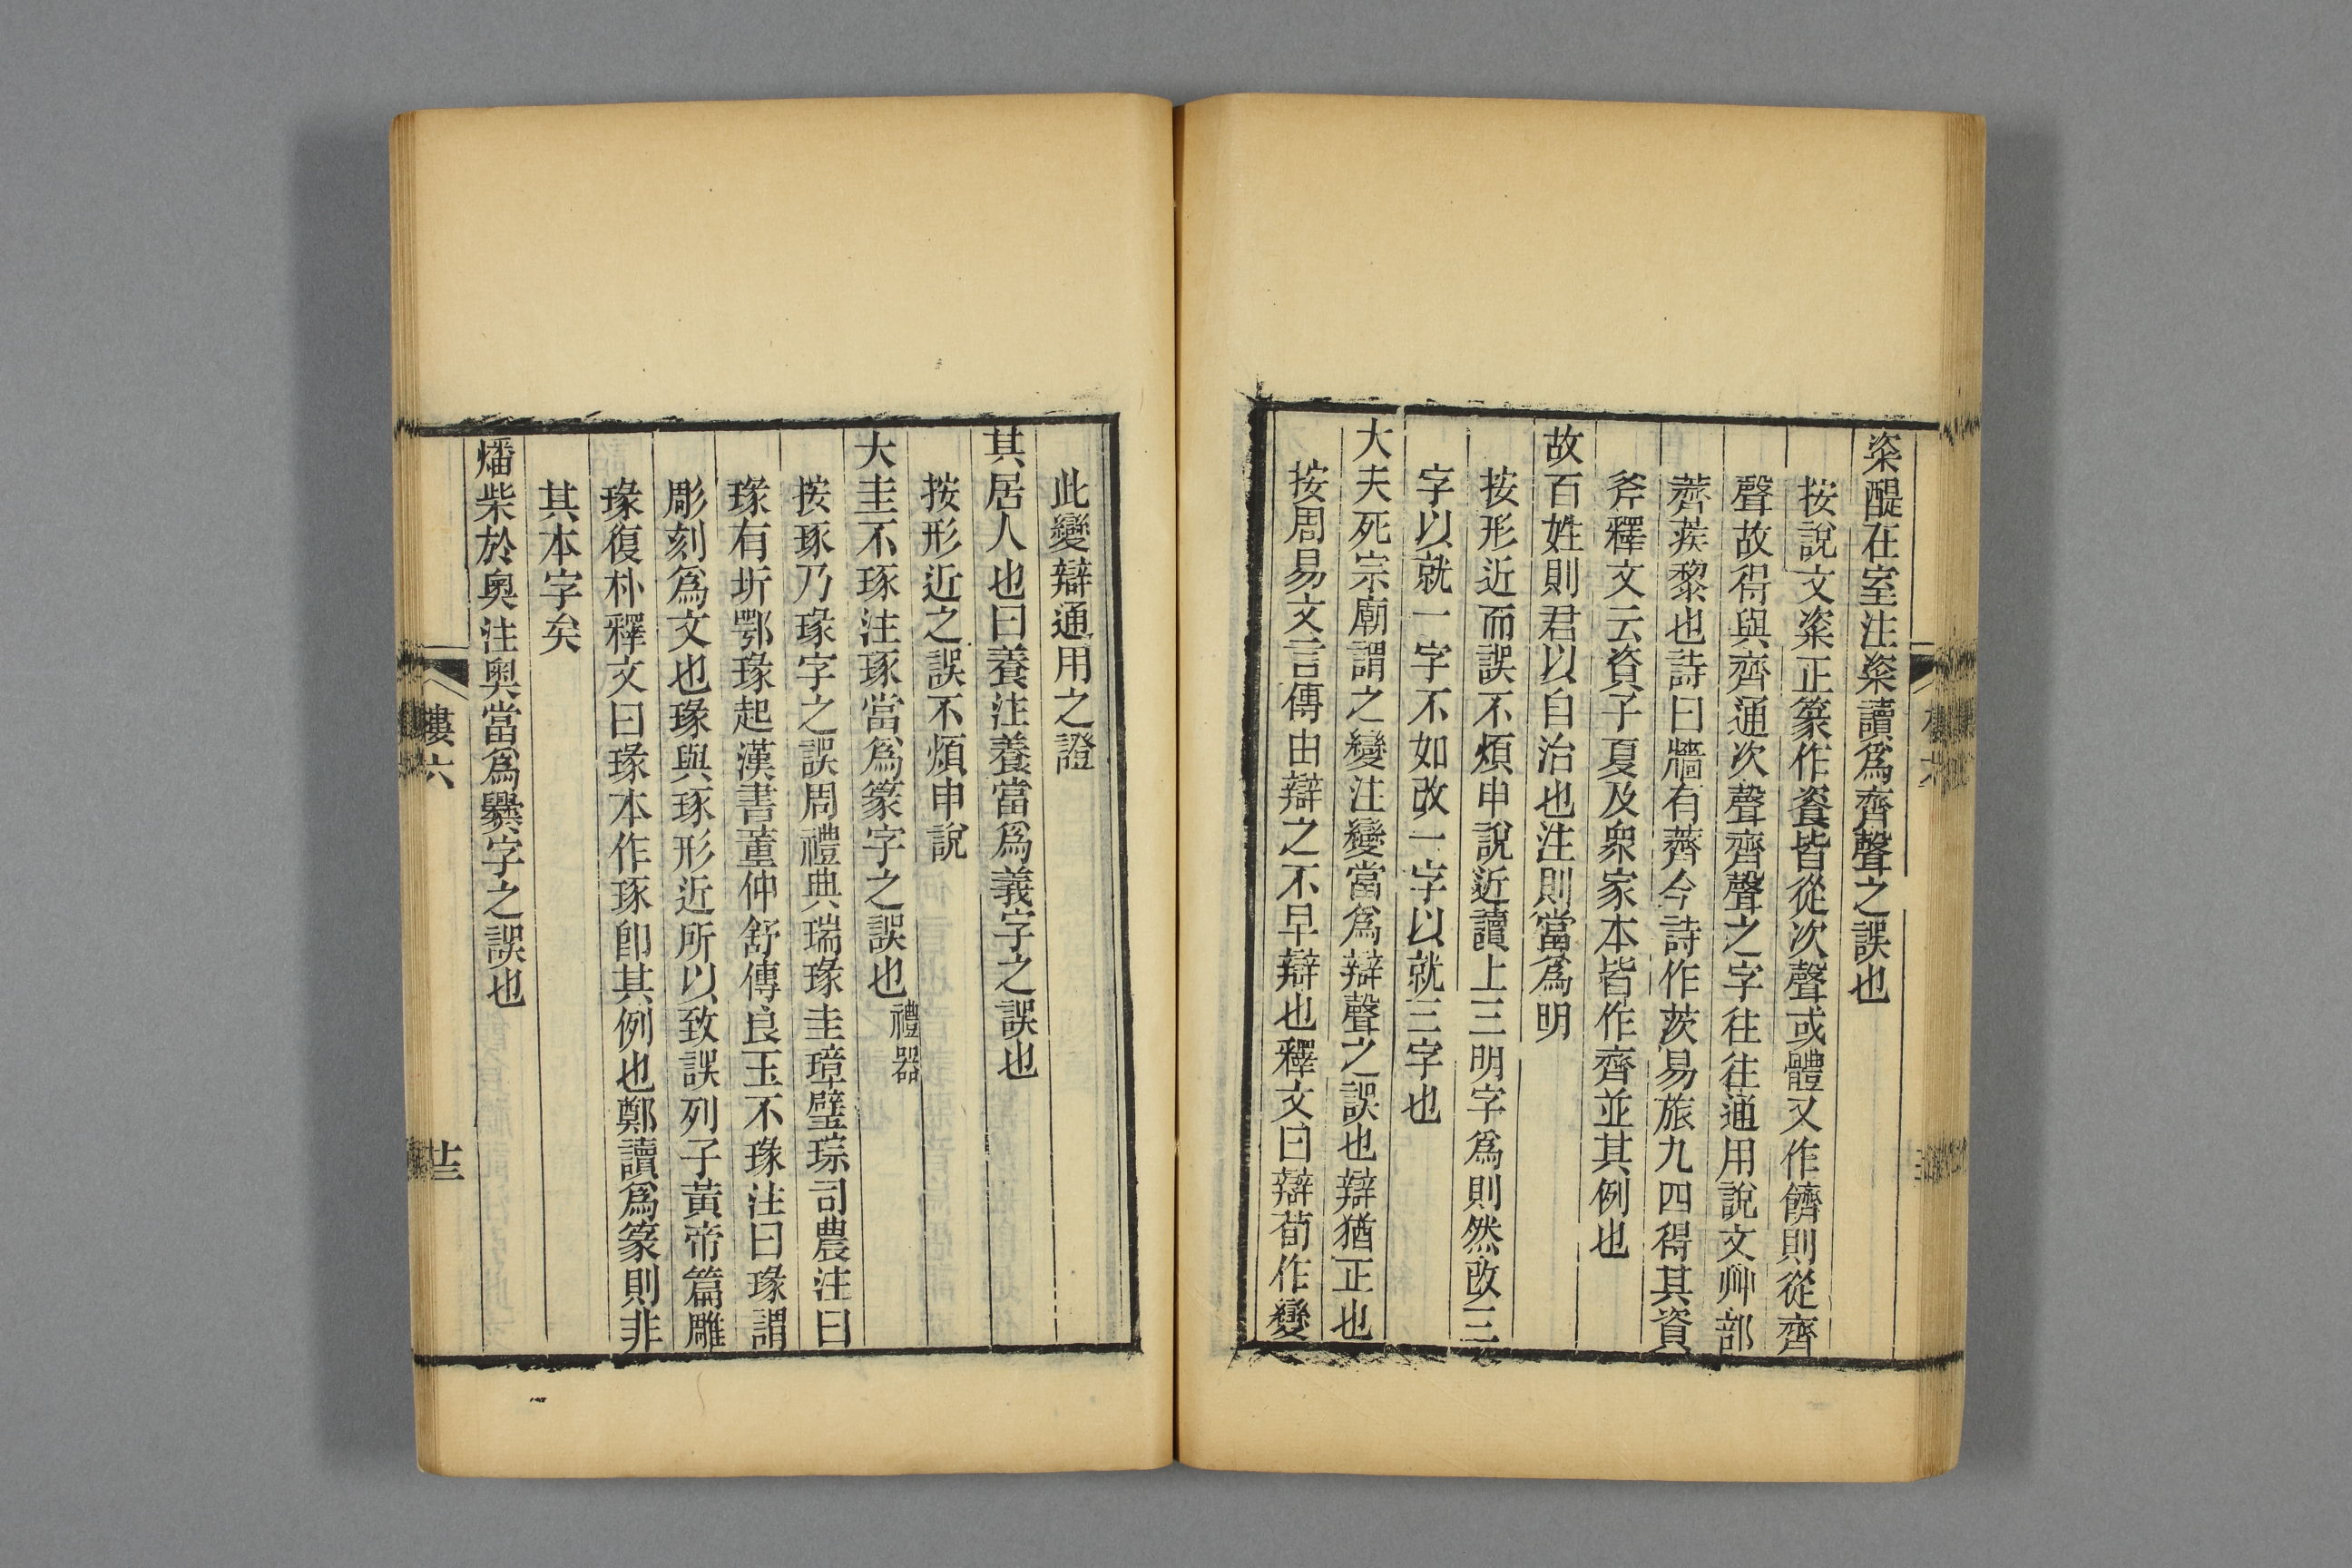 粢醍在室注粢讀爲齊聲之誤也
按說文粢正篆作餈皆從次聲或體又作䭣則從齊
聲故得與齊通次聲齊聲之字往往通用說文艸部
薺蒺黎也詩曰牆有薺今詩作茨易旅九四得其資
斧釋文云資子夏及衆家本皆作齊並其例也
故百姓則君以自治也注則當爲明
按形近而誤不煩申說近讀上三明字爲則然改三
字以就一字不如改一字以就三字也
大夫死宗廟謂之變注變當爲辯聲之誤也辯猶正也
按周易文言傳由辯之不早辯也釋文曰辯荀作變
此變辯通用之證
其居人也曰養注養當爲義字之誤也
按形近之誤不煩申說
大圭不琢注琢當爲篆字之誤也禮器
按琢乃瑑字之誤周禮典瑞瑑圭璋璧琮司農注曰
瑑有圻鄂瑑起漢書董仲舒傳良玉不瑑注曰瑑謂
彫刻爲文也瑑與琢形近所以致誤列子黃帝篇雕
瑑復朴釋文曰瑑本作琢卽其例也鄭讀爲篆則非
其本字矣
燔柴於奧注奧當爲爨字之誤也
樓六
廿三